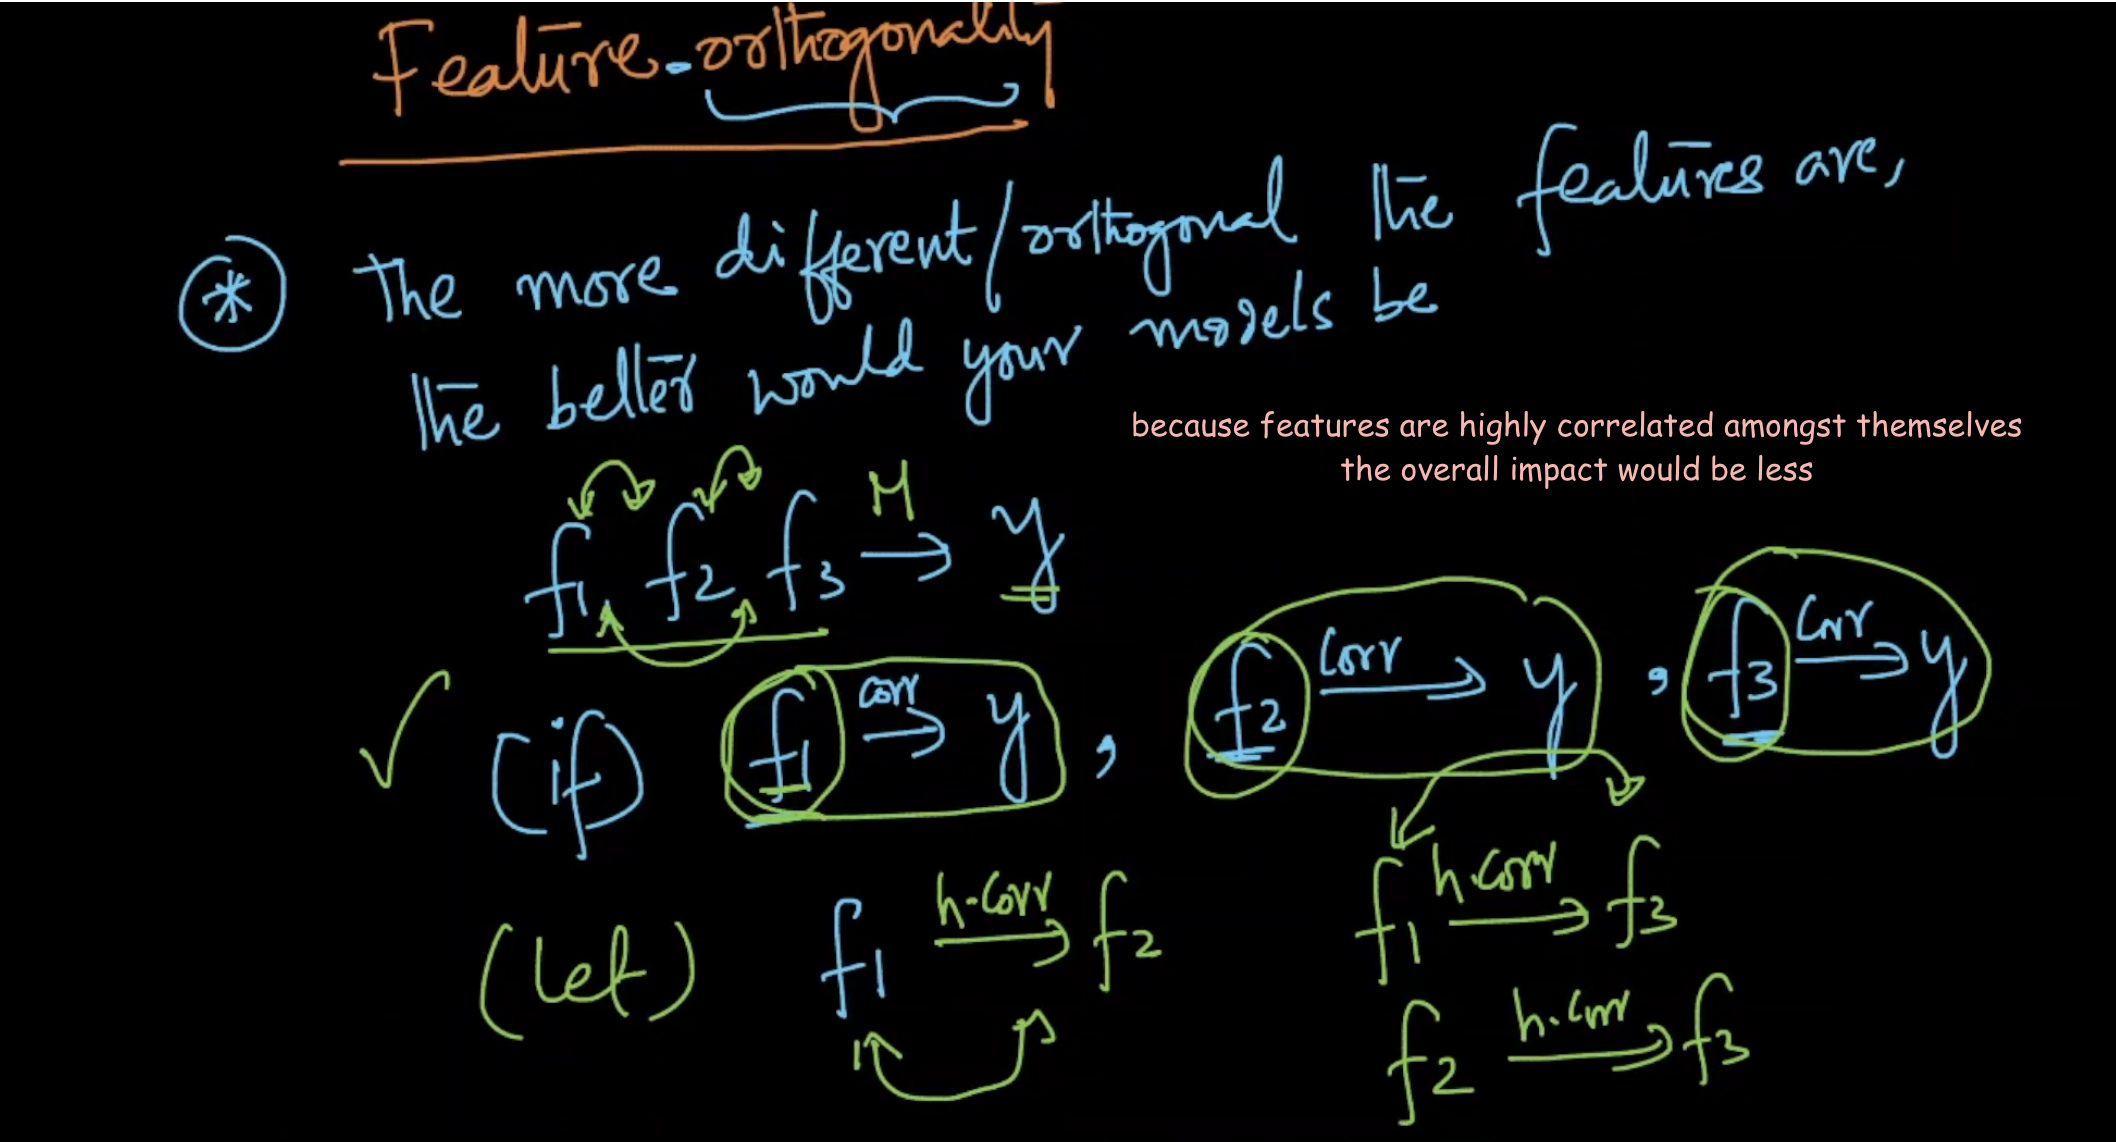 Feature-orthogonality
* The more different/orthogonal the features are,
the better would your models be
because features are highly correlated amongst themselves
the overall impact would be less
f1, f2, f3 M → y
(if) f1 corr → y, f2 corr → y, f3 corr → y
(let) f1 h.corr → f2 f1 h.corr → f3
f2 h.corr → f3